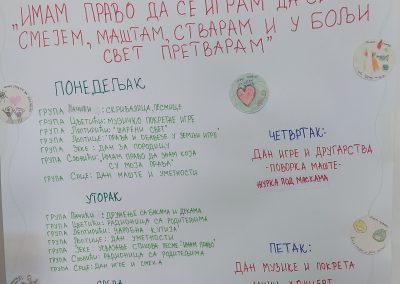 „ИМАМ ПРАВО ДА СЕ ИГРАМ ДА СЕ
СМЕЈЕМ, МАШТАМ, СТВАРАМ И У БОЉИ
СВЕТ ПРЕТВАРАМ"
ПОНЕДЕЉАК
ГРУПА : СКРИВАЛИЦА, ПЕСМИЦЕ
ГРУПА ЦВЕТИЋИ: МУЗИЧКО ПОКРЕТНЕ ИГРЕ
ГРУПА ЛЕПТИРИЋИ: "ШАРЕНИ СВЕТ"
ГРУПА : ПРАВА И ОБАВЕЗЕ У ИГРИ
ГРУПА ЗЕКЕ: ДАН ЗА ПОРОДИЦУ
ГРУПА : ИМАМ ПРАВО ДА ЗНАМ КОЈА
СУ МОЈА ПРАВА"
ГРУПА СРЦЕ: ДАН МАШТЕ И УМЕТНОСТИ
УТОРАК
ГРУПА : ДРУЖЕЊЕ СА БАКАМА И ДЕКАМА
ГРУПА ЦВЕТИЋИ: РАДИОНИЦА СА РОДИТЕЉИМА
ГРУПА ЛЕПТИРИЋИ: ЧАРОБНА КУТИЈА"
ГРУПА : ДАН УМЕТНОСТИ
ГРУПА ЗЕКЕ: ПЕСМЕ „ИМАМ ПРАВО"
ГРУПА : РАДИОНИЦА СА РОДИТЕЉИМА
ГРУПА СРЦЕ: ДАН ИГРЕ И СМЕХА
СРЕДА
ЧЕТВРТАК:
ДАН ИГРЕ И ДРУГАРСТВА
-ПОВОРКА МАШТЕ-
ЖУРКА ПОД МАСКАМА
ПЕТАК:
ДАН МУЗИКЕ И ПОКРЕТА
МИНИ КОНЦЕРТ